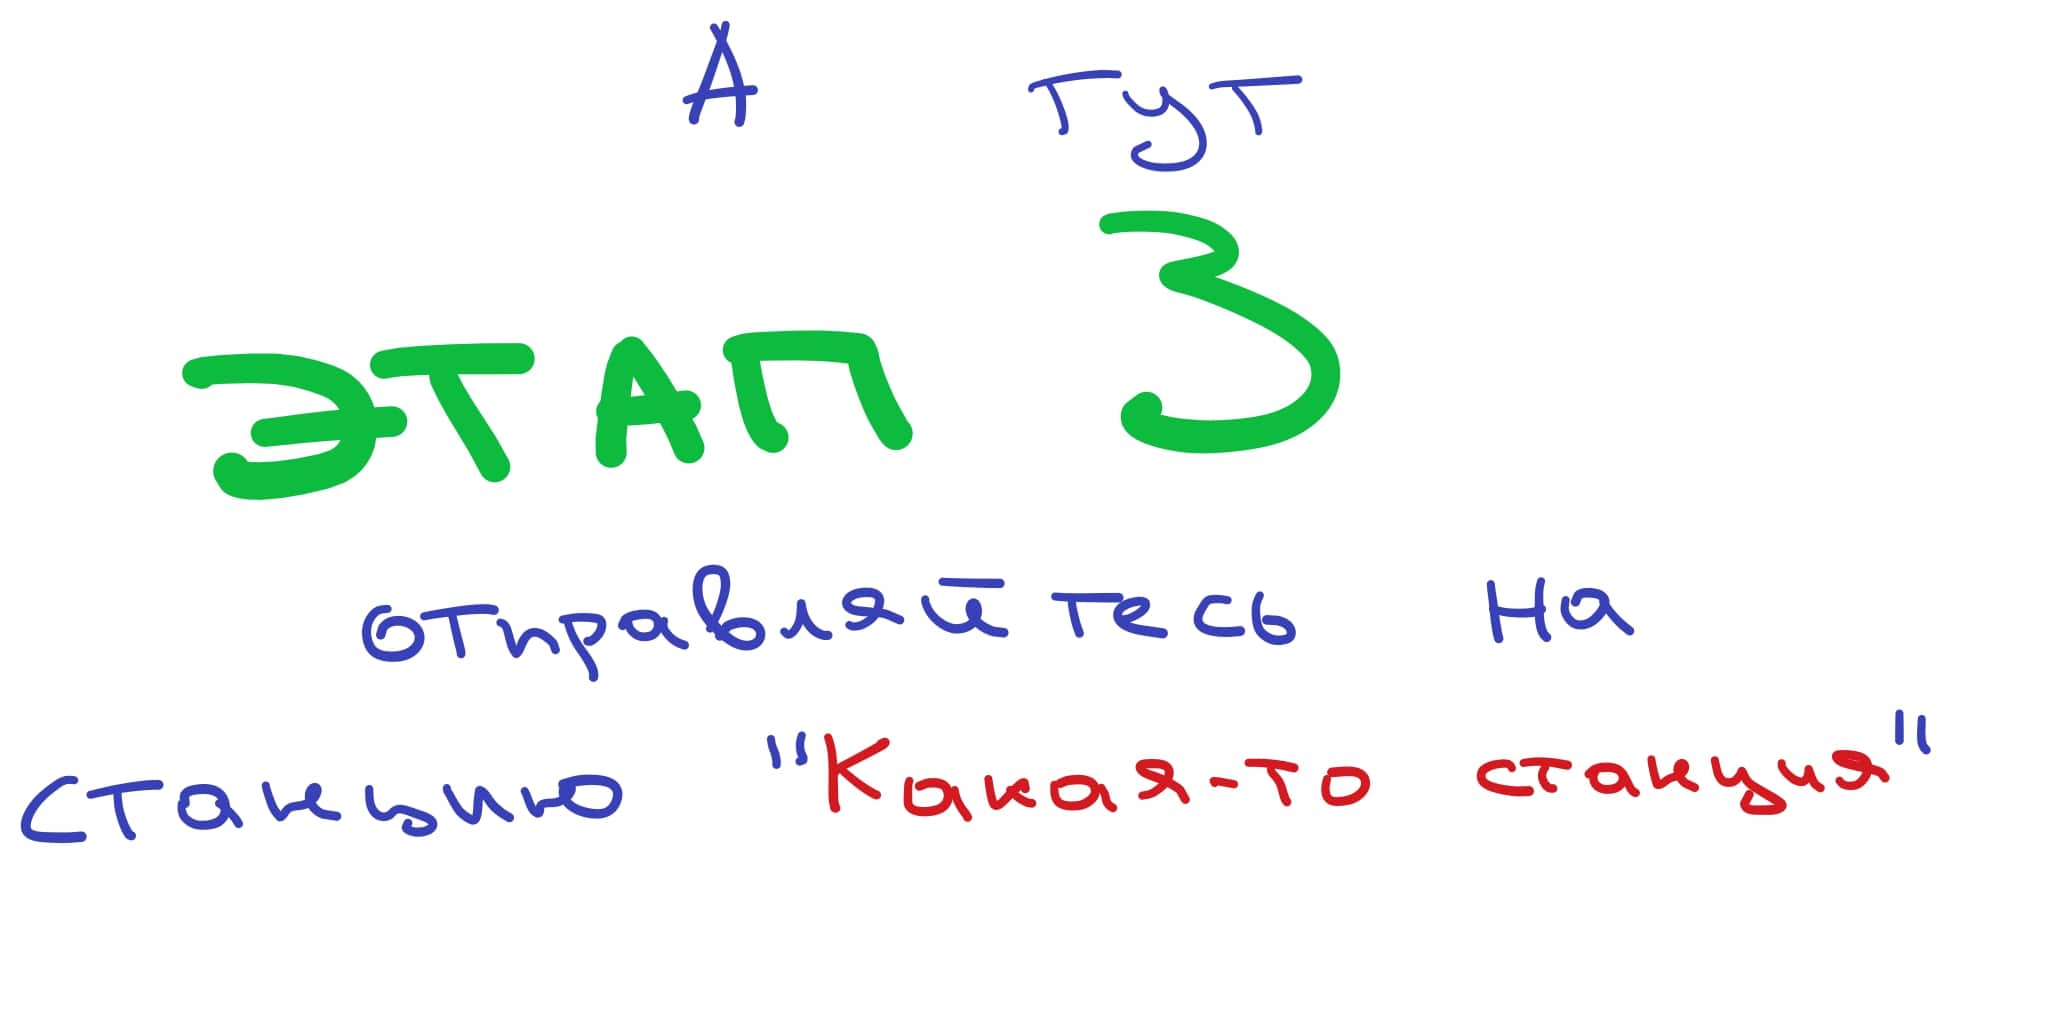 А тут
ЭТАП 3
отправляйтесь на
станцию "Какая-то станция"